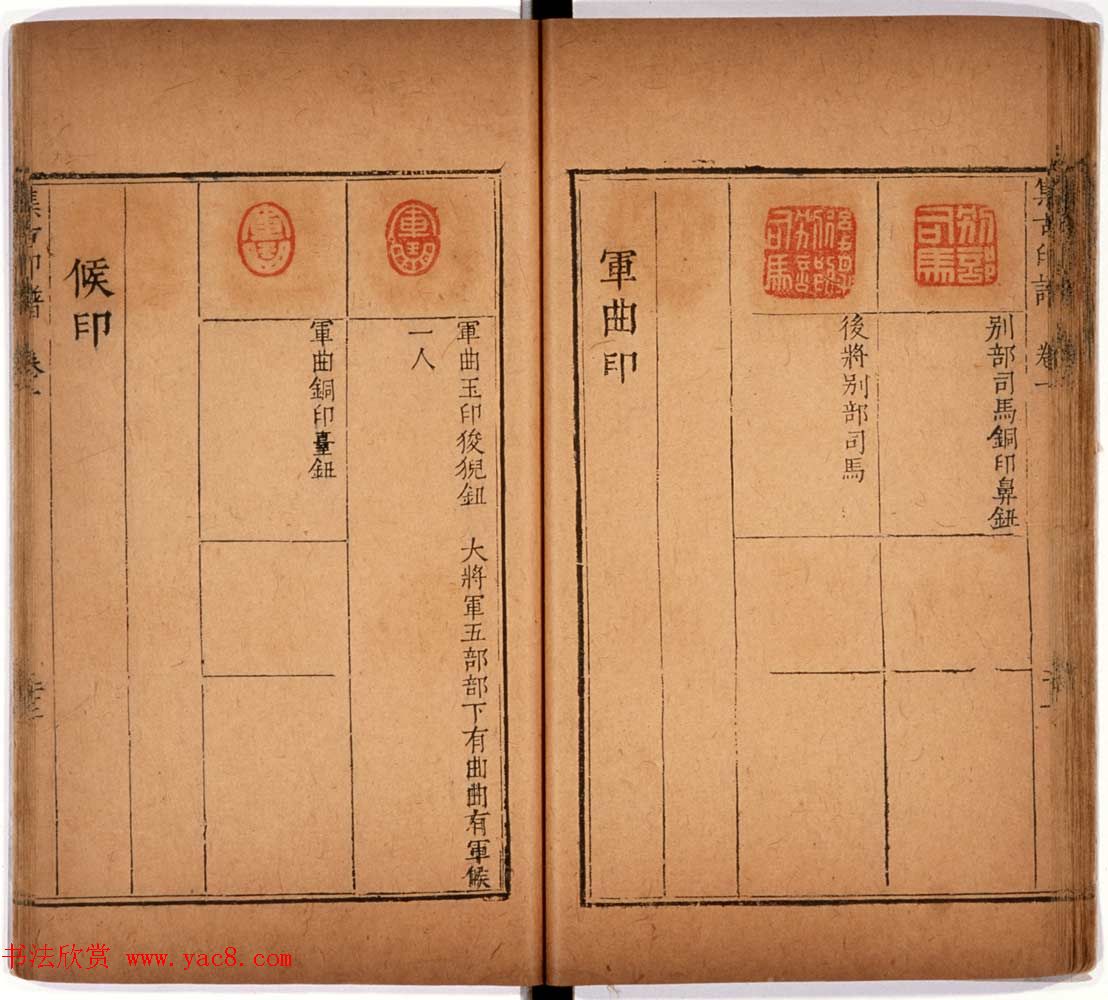 集古印譜 卷一
別部司馬
別部司馬銅印鼻鈕
後將別部司馬
軍曲印
軍曲玉印狻猊鈕 大將軍五部部下有曲曲有軍候
一人
軍曲銅印臺鈕
候印
集古印譜 卷一
书法欣赏 www.yac8.com